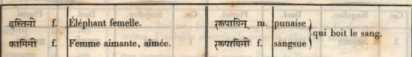 हस्तिनी f. Éléphant femelle.
कामिनी f. Femme aimante, aimée.
रक्तपायिन् m. punaise
रक्तपायिनी f. sangsue
qui boit le sang.